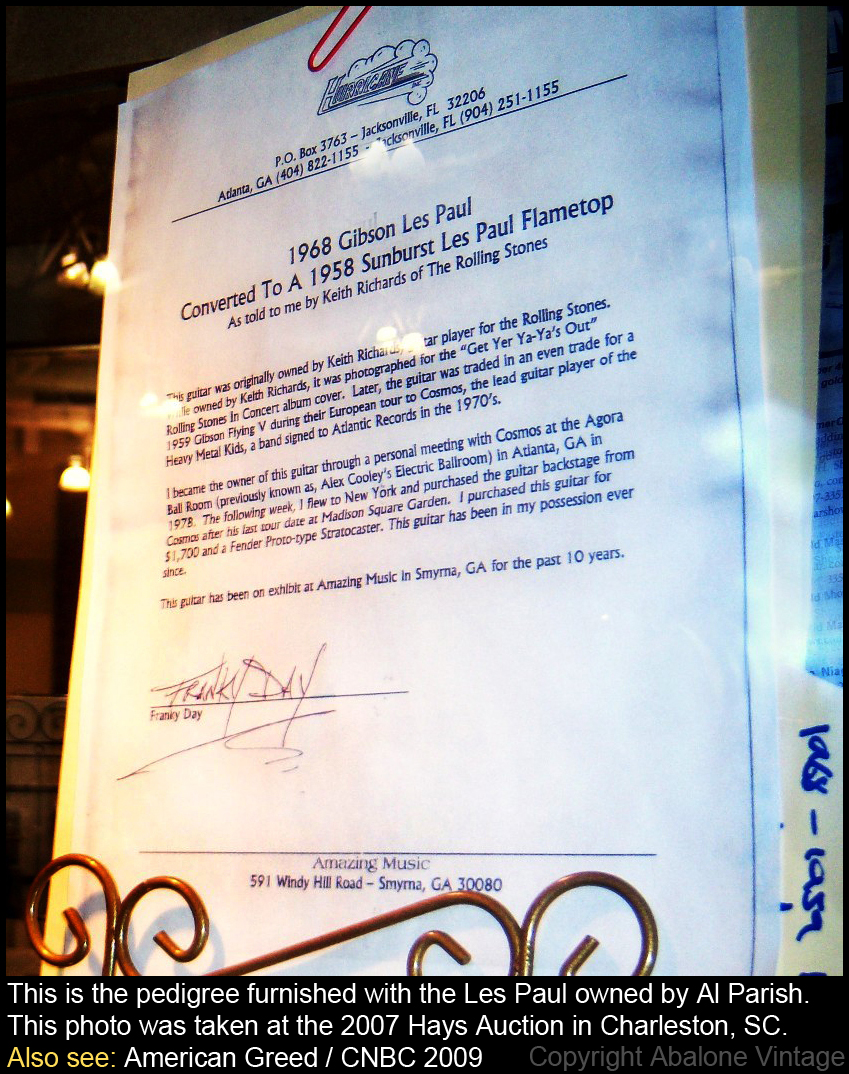 HURRICANE INC
P.O. Box 3763 – Jacksonville, FL 32206
Atlanta, GA (404) 822-1155 - Jacksonville, FL (904) 251-1155
1968 Gibson Les Paul
Converted To A 1958 Sunburst Les Paul Flametop
As told to me by Keith Richards of The Rolling Stones
This guitar was originally owned by Keith Richards, guitar player for the Rolling Stones.
While owned by Keith Richards, it was photographed for the “Get Yer Ya-Ya’s Out”
Rolling Stones In Concert album cover. Later, the guitar was traded in an even trade for a
1959 Gibson Flying V during their European tour to Cosmos, the lead guitar player of the
Heavy Metal Kids, a band signed to Atlantic Records in the 1970’s.
I became the owner of this guitar through a personal meeting with Cosmos at the Agora
Ball Room (previously known as, Alex Cooley’s Electric Ballroom) in Atlanta, GA in
1978. The following week, I flew to New York and purchased the guitar backstage from
Cosmos after his last tour date at Madison Square Garden. I purchased this guitar for
$1,700 and a Fender Proto-type Stratocaster. This guitar has been in my possession ever
since.
This guitar has been on exhibit at Amazing Music in Smyrna, GA for the past 10 years.
FRANKY DAY
Franky Day
Amazing Music
591 Windy Hill Road – Smyrna, GA 30080
This is the pedigree furnished with the Les Paul owned by Al Parish.
This photo was taken at the 2007 Hays Auction in Charleston, SC.
Also see: American Greed / CNBC 2009 Copyright Abalone Vintage